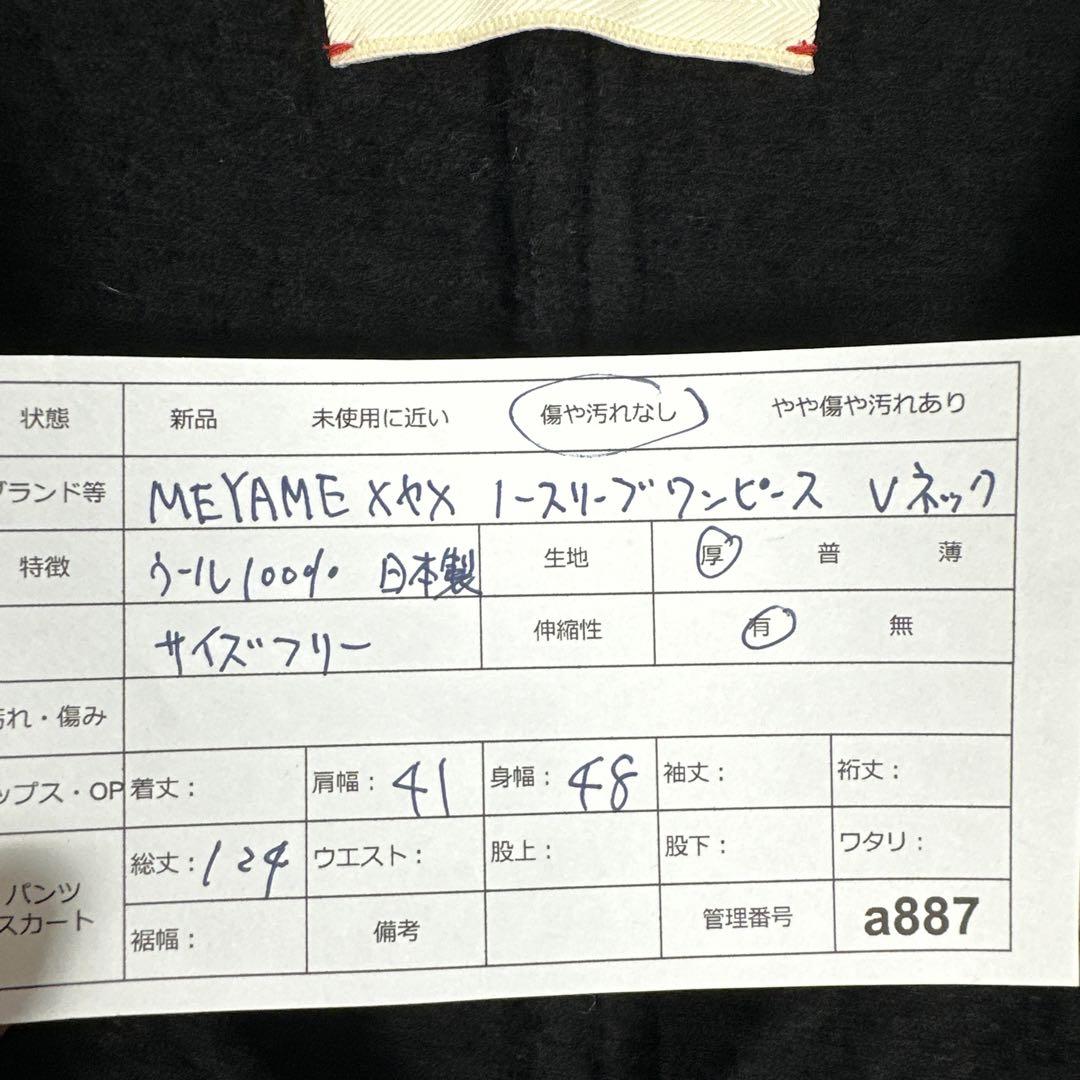 状態 新品 未使用に近い 傷や汚れなし やや傷や汚れあり
ブランド等 MEYAME メヤメ ノースリーブワンピース Vネック
特徴 ウール100% 日本製 生地 厚 普 薄
サイズフリー 伸縮性 有 無
汚れ・傷み
ップス・OP 着丈: 肩幅: 41 身幅: 48 袖丈: 裄丈:
総丈: 124 ウエスト: 股上: 股下: ワタリ:
パンツ
スカート
裾幅: 備考 管理番号 a887